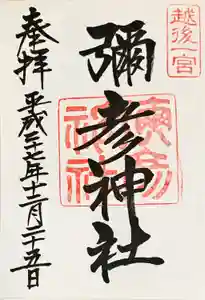 越後一宮
彌彦神社
奉拝
平成二十七年十二月二十五日